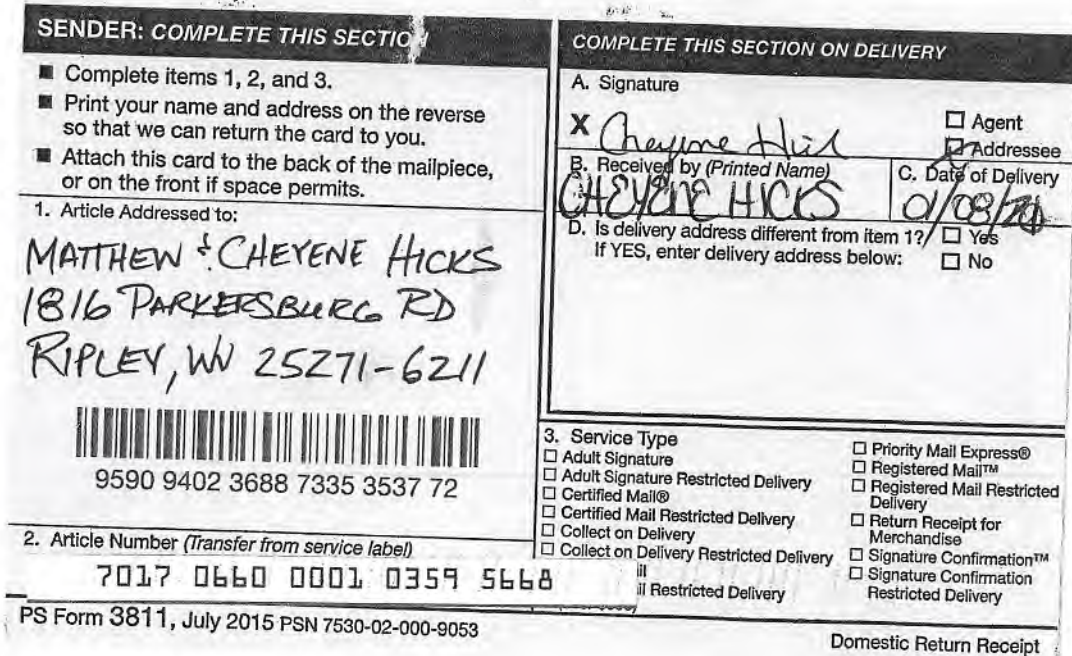 SENDER: COMPLETE THIS SECTION
■ Complete items 1, 2, and 3.
■ Print your name and address on the reverse
so that we can return the card to you.
■ Attach this card to the back of the mailpiece,
or on the front if space permits.
1. Article Addressed to:
MATTHEW & CHEYENE HICKS
1816 PARKERSBURG RD
RIPLEY, WV 25271-6211
9590 9402 3688 7335 3537 72
2. Article Number (Transfer from service label)
7017 0660 0001 0359 5668
PS Form 3811, July 2015 PSN 7530-02-000-9053
COMPLETE THIS SECTION ON DELIVERY
A. Signature
X Cheyene
☐ Agent
☐ Addressee
B. Received by (Printed Name)
CHEYENE HICKS
C. Date of Delivery
01/08/
D. Is delivery address different from item 1? ☐ Yes
If YES, enter delivery address below: ☐ No
3. Service Type
☐ Adult Signature
☐ Adult Signature Restricted Delivery
☐ Certified Mail®
☐ Certified Mail Restricted Delivery
☐ Collect on Delivery
☐ Collect on Delivery Restricted Delivery
il
il Restricted Delivery
☐ Priority Mail Express®
☐ Registered Mail™
☐ Registered Mail Restricted
Delivery
☐ Return Receipt for
Merchandise
☐ Signature Confirmation™
☐ Signature Confirmation
Restricted Delivery
Domestic Return Receipt